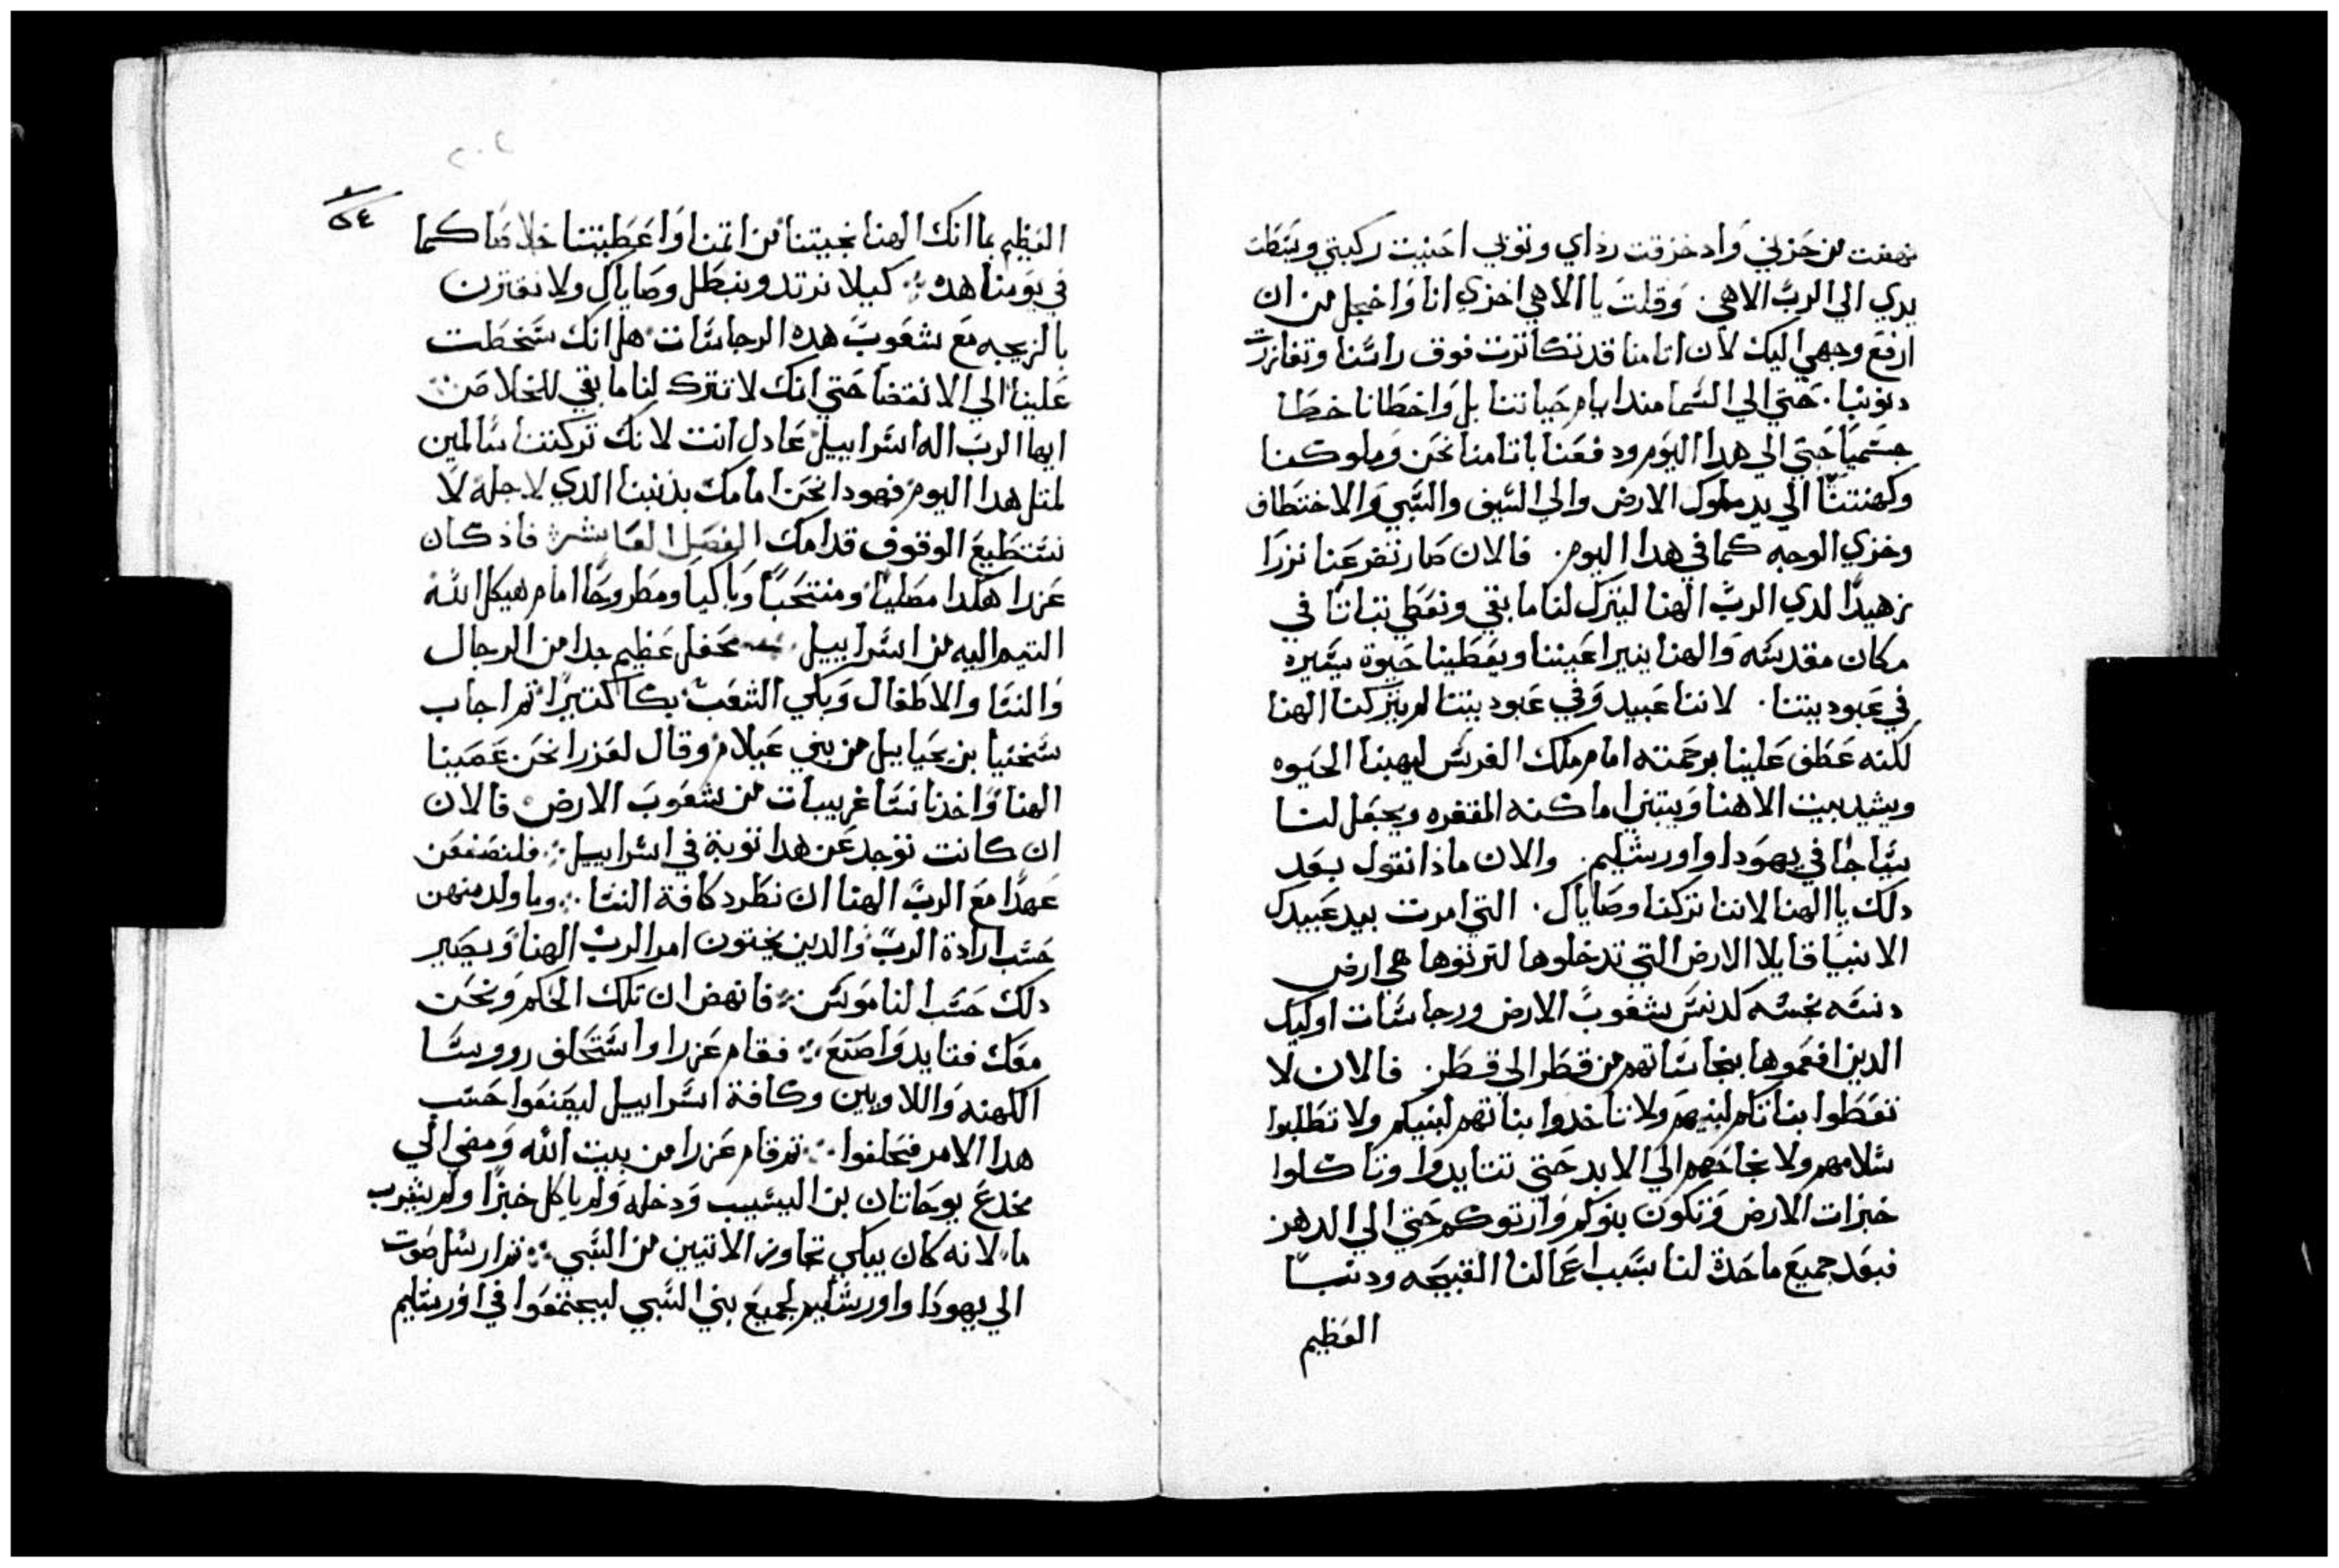 نهضت من حزني وَاد خزقت رداي وتوبي احنيت ركبتي وبسَطت
يدي الي الربَّ الاهي. وَقلتَ يا الاهي اخزي انا وَاخجل من ان
ارفع وجهي اليك لان اتامنا قد تكاترت فوق راسَنا وتفاززت
دنوبنا. حَتي الي السَما مند ايام حَياتنا بل وَاخطانا خطَا
جسَميًا حَتي الي هدا اليوَم ودفعَنا باتامنا نحَن وَملوكنا
وكهنتنا الي يد ملوك الارض والي السَيف والسَبي وَالاختطَاف
وخزي الوجه كما في هدا اليوم. فالان صَار تضرعَنا نزرَا
زهيدًا لدي الربَّ الهنا ليترك لنا ما بقي ونعَطي تباتًا في
مكان مقدسَه وَالهنا ينير اعَيننا ويعَطينا حَيوة يسَيره
في عَبوديتنا. لاننا عَبيد وَفي عَبوديتنا لم يتركنا الهنا
لكنه عَطَف عَلينا برحَمته امام ملك الفرسَ ليهبنا الحَيوه
ويشيد بيت الاهنا وَيبتني اماكنه المقفره ويجعَل لنا
سَياجًا في يهوَدا واورشليم. والان ماذا نقول بعَد
دلك يا الهنا لاننا تركنا وصَاياك. التي امرت بيد عَبيدك
الانبيَا قايلا الارض التي تدخلوها لترتوها هي ارض
دنسَه نجسَه كدنسَ شعَوبَ الارض ورجاسَات اوليك
الدين افعَموها بنجاسَاتهم من قطَر الي قطَر. فالان لا
تعَطَوا بناتكم لبنيهم وَلا تاخدوا بناتهم لبنيكم ولا تطَلبوا
سَلامهم ولا نجاحَهم الي الابد حَتي تتايدوَا وتاكلوا
خيرات الارض وَتكون بنوكم وَارتوكم حَتي الي الدهر
فبعَد جميعَ ما حَدث لنا بسَبب اعَمالنا القبيحَه ودنبنا
العَظيم
٢٠٢
٥٤
العَظيم بما انك الهنا نجيتنا من اتمنا وَاعَطَيتنا خلاصًا كما
في يوَمنا هدا كيلا نرتد ونبطَل وصَاياك ولا نقترن
بالزيجه معَ شعَوبَ هده الرجاسَات هل انك سَخطَت
عَلينا الي الانقضا حَتي انك لا تترك لنا ما بقي للخلاصَ
ايها الربَ اله اسَراييل عَادل انت لانك تركتنا سَالمين
لمتل هدا اليوم فهودا نحَن امامك بدنبنا الدي لاجله لا
نسَتطَيعَ الوقوف قدامك الفصَل العَاشر فاذ كان
عَزرا هكدا مصَليًا ومنتحَبًا وَباكيًا ومطَروحًا امام هيكل الله
التيم اليه من اسَراييل محَفل عَظيم جدا من الرجال
وَالنسَا والاطَفال وَبكي الشعَب بكا كتيرًا تم اجاب
سَخنيا بن يحَياييل من بني عَيلام وقال لعَزرا نحَن عَصَينا
الهنا وَاخدنا نسَا غريبات من شعَوبَ الارض فالان
ان كانت توَجد عَن هدا توبة في اسَراييل فلنصَنعَن
عَهدًا معَ الربَّ الهنا ان نطَرد كافة النسَا وما ولد منهن
حسَب ارادة الربّ وَالدين يختون امر الربَّ الهنا وَيصَير
دلك حَسَب الناموَسَ فانهض ان تلك الحَكم وَنحَن
معَك فتايد وَاصَنعَ فقام عَزرا واسَتحَلف رووسَا
الكهنه وَاللاويين وكافة اسَراييل ليصَنعَوا حَسَب
هدا الامر فحَلفوا تم قام عَزرا من بيت الله وَمضي الي
مخدعَ يوحَانان بن اليسَيب وَدخله وَلم ياكل خبزًا وَلم يشرب
ما لانه كان يبكي تجاوز الاتيين من السَبي تم ارسَل صَوت
الي يهودَا واورشليم لجميعَ بني السَبي ليجتمعَوا في اورشليم